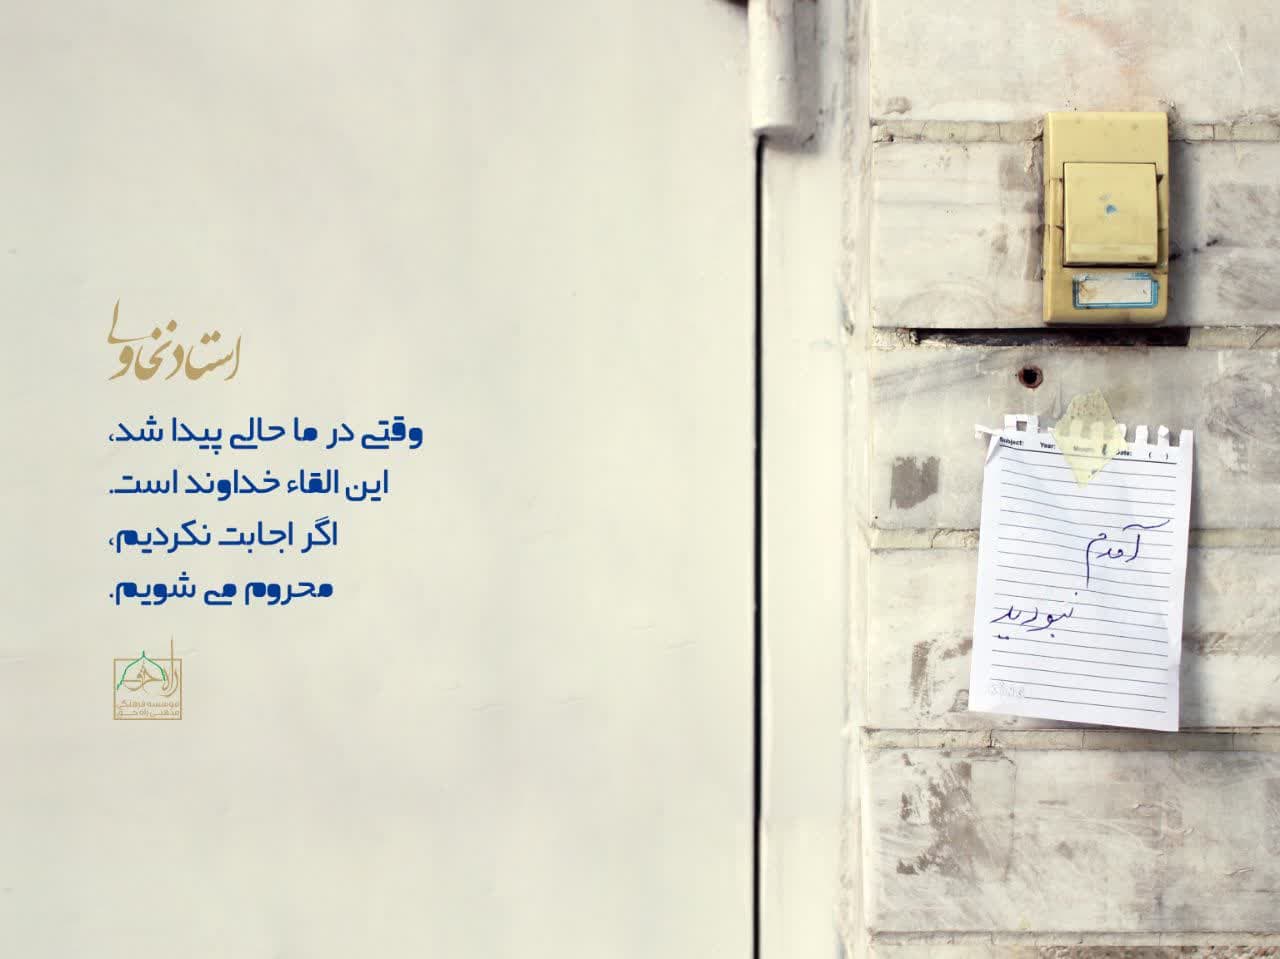 استاد نخاولی
وقتی در ما حالی پیدا شد،
این القاء خداوند است.
اگر اجابت نکردیم،
محروم می شویم.
راه حق
موسسه فرهنگی
مذهبی راه حق
Subject: Year: Month: Date: ( )
آمدم
نبودید